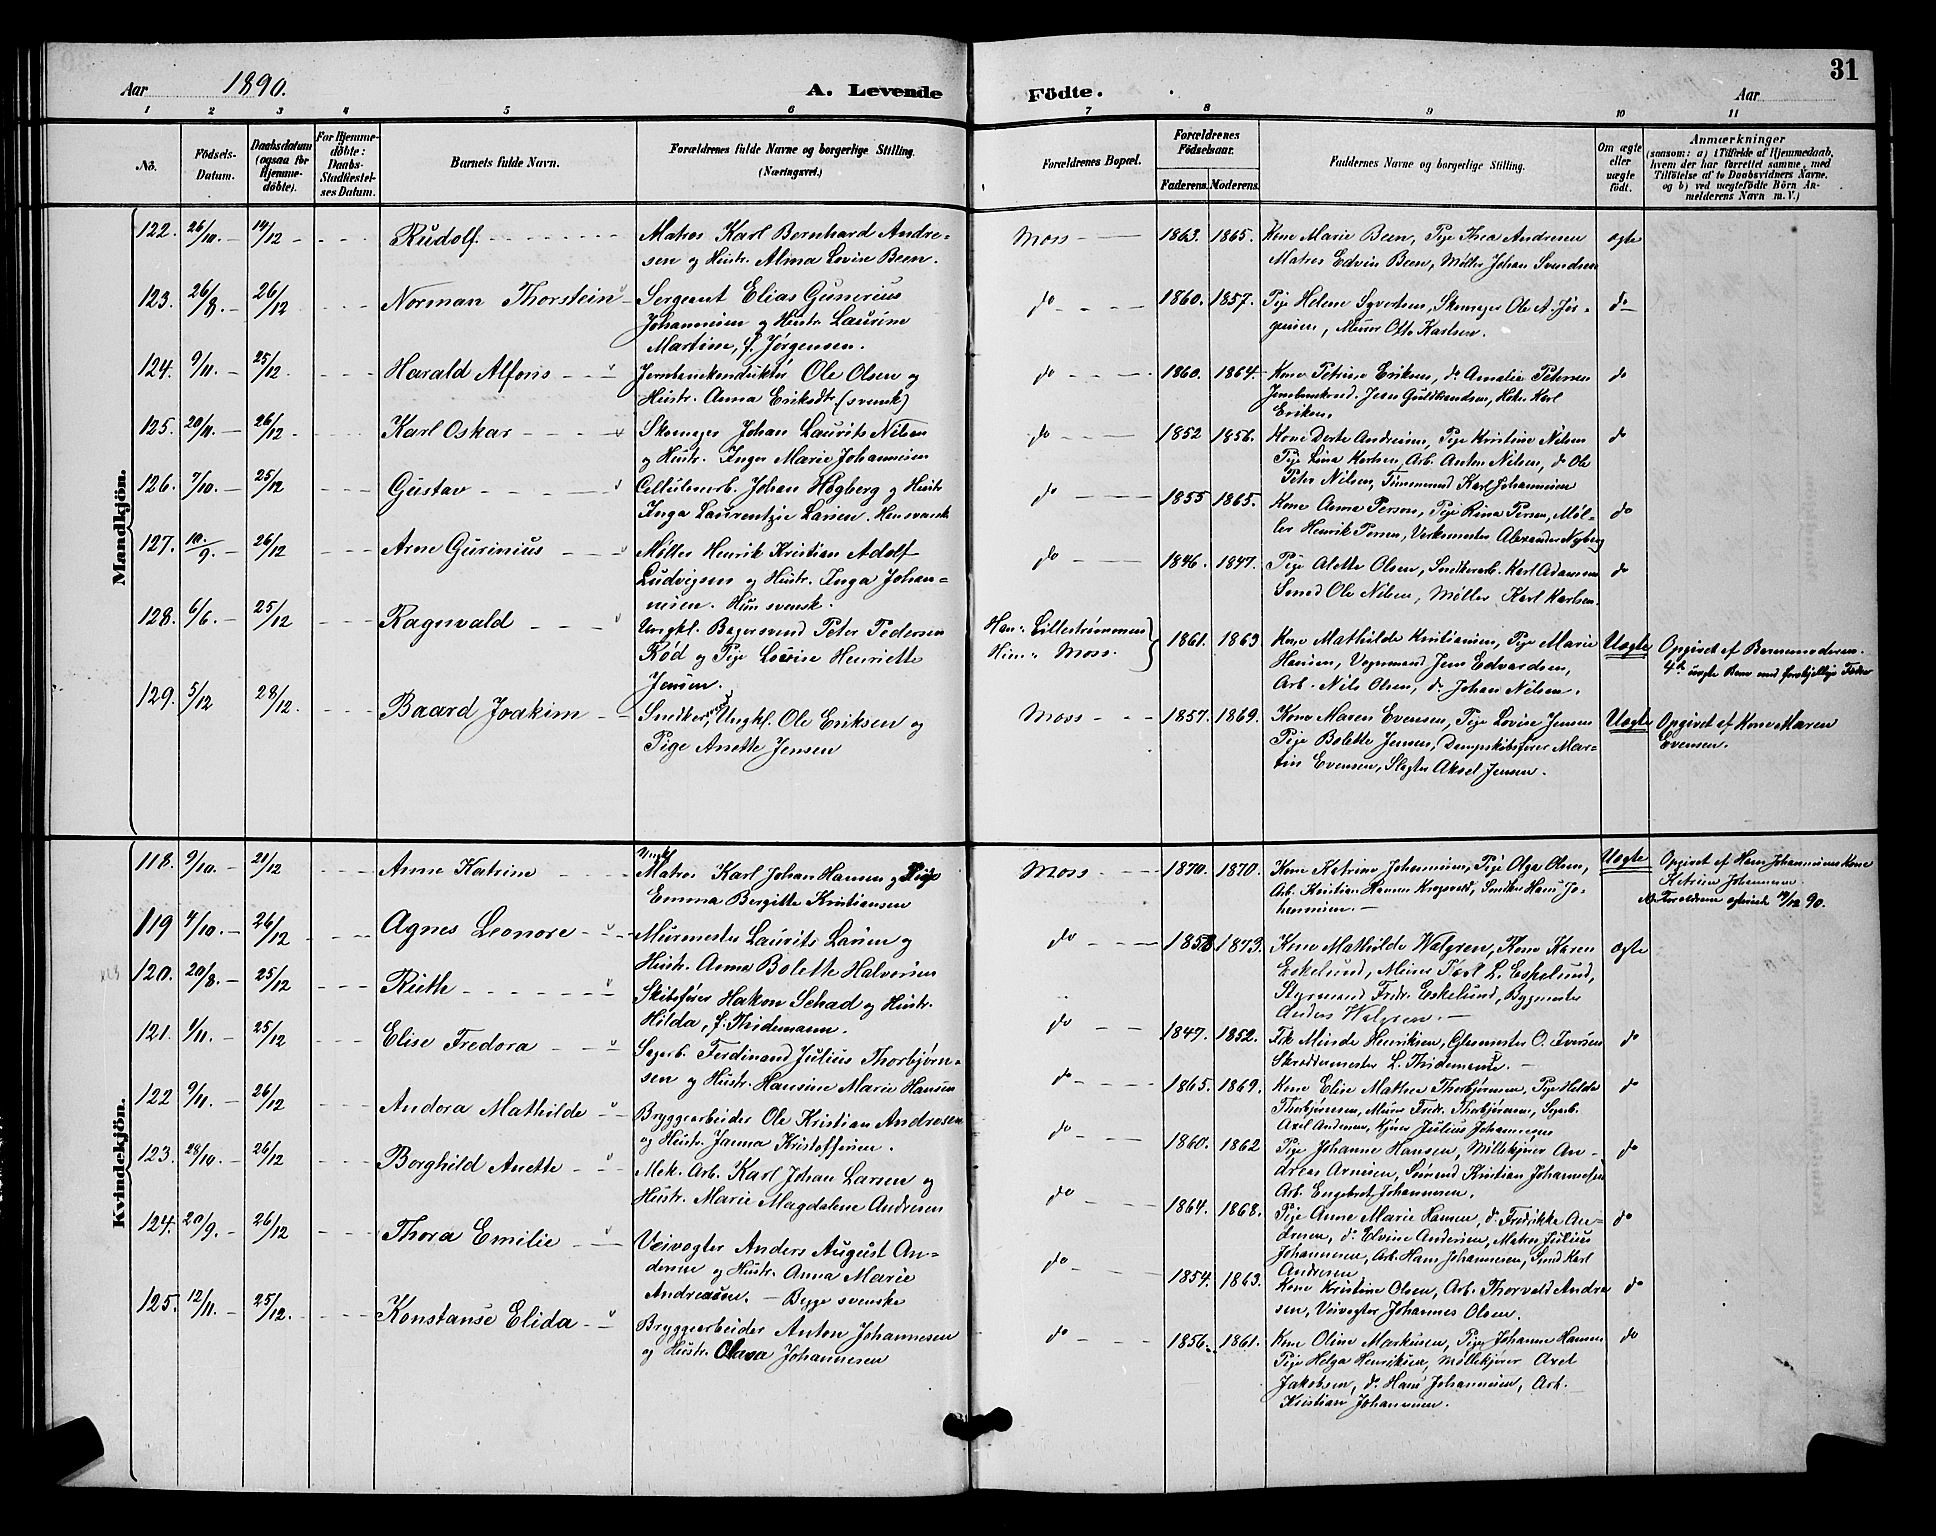 31
Aar 1890.
A. Levende
Födte.
Aar
1 2 3 4 5 6 7 8 9 10 11
Nô.
Födsels-
Datum.
Daabsdatum
(ogsaa for
Hjemme-
döbte).
For Hjemme-
döbte:
Daabs-
Stadfæstel-
ses Datum.
Barnets fulde Navn.
Forældrenes fulde Navne og borgerlige Stilling.
(Næringsvei.)
Forældrenes Bopæl.
Forældrenes
Födselsaar.
Faderens. Moderens.
Faddernes Navne og borgerlige Stilling.
Om ægte
eller
uægte
födt.
Anmærkninger
(saasom: a) i Tilfælde af Hjemmedaab,
hvem der har forrettet samme, med
Tilföielse af to Daabsvidners Navne,
og b) ved uægtefödte Börn An-
melderens Navn m. V.)
Mandkjön.
122. 26/10. 14/12 Rudolf. Matros Karl Bernhard Andre-
sen og Hustr. Alma Lovise Been. Moss 1863. 1865. Kone Marie Been, Pige Thea Andresen
Matros Edvin Been, Møller Johan Svendsen ægte
123. 26/8. 26/12 Norman Thorstein Sergeant Elias Gunerius
Johannesen og Hustr. Laurine
Martine, f. Jørgensen. do 1860. 1857. Pige Helene Syvertsen, Skomager Ole A. Jør-
gensen, Murer Otto Karlsen. do
124. 9/11. 25/12 Harald Alfons Jernbanekonduktør Ole Olsen og
Hustr. Anna Eriksdtr. (svensk) do 1860. 1864. Kone Petrine Eriksen, do Amalie Petersen
Jean Guldbrandsen, Karl
Eriksen. do
125. 20/11. 26/12 Karl Oskar Skomager Johan Laurits Nilsen
og Hustr. Inger Marie Johannesen do 1852 1856. Kone Dorte Andresen, Pige Kristine Nilsen
Pige Lina Karlsen, Arb. Anton Nilsen, do Ole
Peter Nilsen, Tømmermd Karl Johannesen do
126. 7/10. 25/12 Gustav Cellulosearb. Johan Høgberg og Hustr
Inga Laurentzie Larsen. Han svensk do 1855 1865. Kone Anna Person, Pige Rina Persen, Møl-
ler Henrik Persen, Verkmester Alexander Nyberg do
127. 10/9. 26/12 Arne Gurinius Møller Henrik Kristian Adolf
Ludvigsen og Hustr. Inga Johan-
nesen. Hun svensk. do 1846. 1847. Pige Alette Olsen, Snedkerarb. Karl Adamsen
Smed Ole Nilsen, Møller Karl Karlsen. do
128. 6/6. 25/12 Ragnvald Ungkl. Bagersvend Peter Pedersen
Rød og Pige Lovise Henriette
Jensen. Han: Lillestrømmen
Hun: Moss. 1861. 1863 Kone Mathilde Kristiansen, Pige Marie
Hansen, Vognmand Jens Edvardsen,
Arb. Nils Olsen, do Johan Nilsen. Uægte Opgivet af Barnemoderen.
4de uægte Barn med forskjellige Fædre
129. 5/12 28/12. Baard Joakim Snedker, Ungkl. Ole Eriksen og
Pige Anette Jensen Moss 1857. 1869. Kone Maren Evensen, Pige Lovise Jensen
Pige Bolette Jensen, Dampskibsfører Mar-
tin Evensen, Slagter Aksel Jensen. Uægte Opgivet af Kone Maren
Evensen.
Kvindekjön.
118. 9/10. 21/12 Anne Katrine Ungkl
Matros Karl Johan Hansen og Pige
Emma Bergitte Kristiansen Moss 1870. 1870. Kone Katrine Johannesen, Pige Olga Olsen,
Arb. Kristian Hansen Krogsveld, Snedker Hans Jo-
hannesen. Uægte Opgivet af Hans Johannesens Kone
Katrine Johannesen.
90.
119 4/10. 26/12 Agnes Leonore Murmester Laurits Larsen og
Hustr. Anna Bolette Halvorsen do 1858 1873. Kone Mathilde Walgren, Kone Karen
Eskelund, Murer L. Eskelund,
Styrmand Fredr. Eskelund, Bygmester
Anders Walgren. ægte
120. 20/8. 25/12 Ruth Skibsfører Hakon Schad og Hustr.
Hilda, f. Thidemann. do 1847. 1852. Frk Minda Henriksen, Glasmester O. Iversen
Skræddermester L. Thidemann. do
121. 1/11. 25/12 Elise Fredora Sagarb. Ferdinand Julius Thorbjørn-
sen og Hustr. Hansine Marie Hansen do 1865. 1869. Kone Elise Mathea Thorbjørnsen, Pige Helda
Thorbjørnsen, Murer Fredr. Thorbjørnsen, Sagarb.
Axel Andersen, Kjører Julius Johannesen do
122 9/11. 26/12 Andora Mathilde Bryggearbeider Ole Kristian Andresen
og Hustr. Janna Kristoffersen. do 1860. 1862 Pige Johanne Hansen, Møllekjører An-
dreas Arnesen, Sømand Kristian Johannesen
Arb. Engebret Johannesen. do
123. 28/10. 26/12 Borghild Anette Mek. Arb. Karl Johan Larsen og
Hustr. Marie Magdalene Andresen do 1864. 1868. Pige Anne Marie Hansen, do Fredrikke An-
dresen, do Elvine Andersen, Matros Julius
Johannesen, Arb. Hans Johannesen, Smed Karl
Andresen do
124. 20/9. 26/12 Thora Emilie Veivogter Anders August An-
dersen og Hustr. Anna Marie
Andreasen. — Begge svenske do 1854. 1863. Kone Kristine Olsen, Arb. Thorvald Andre
sen, Veivogter Johannes Olsen. do
125. 12/11. 25/12. Konstanse Elida Bryggearbeider Anton Johannesen
og Hustr. Olava Johannesen do 1856. 1861. Kone Oline Markusen, Pige Johanne Hansen
Pige Helga Henriksen, Møllekjører Axel
Jakobsen, do Hans Johannesen, Arb.
Kristian Johannesen. do